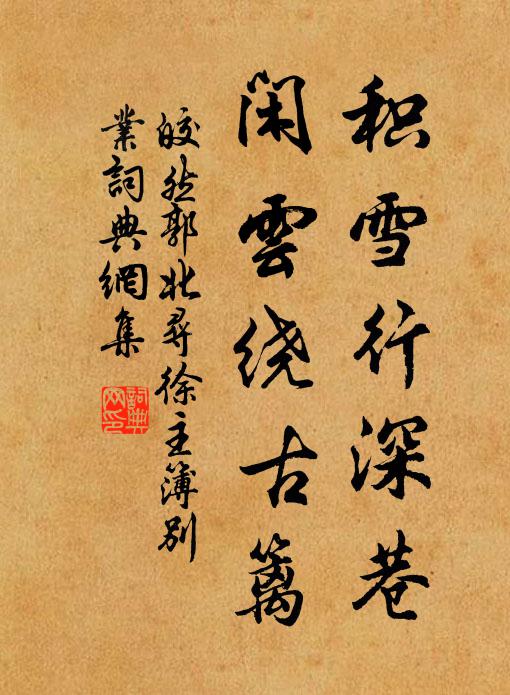 积雪行深巷
闲雲绕古篱
皎然郭北尋徐主簿别
業詞典網集
詞典
网印